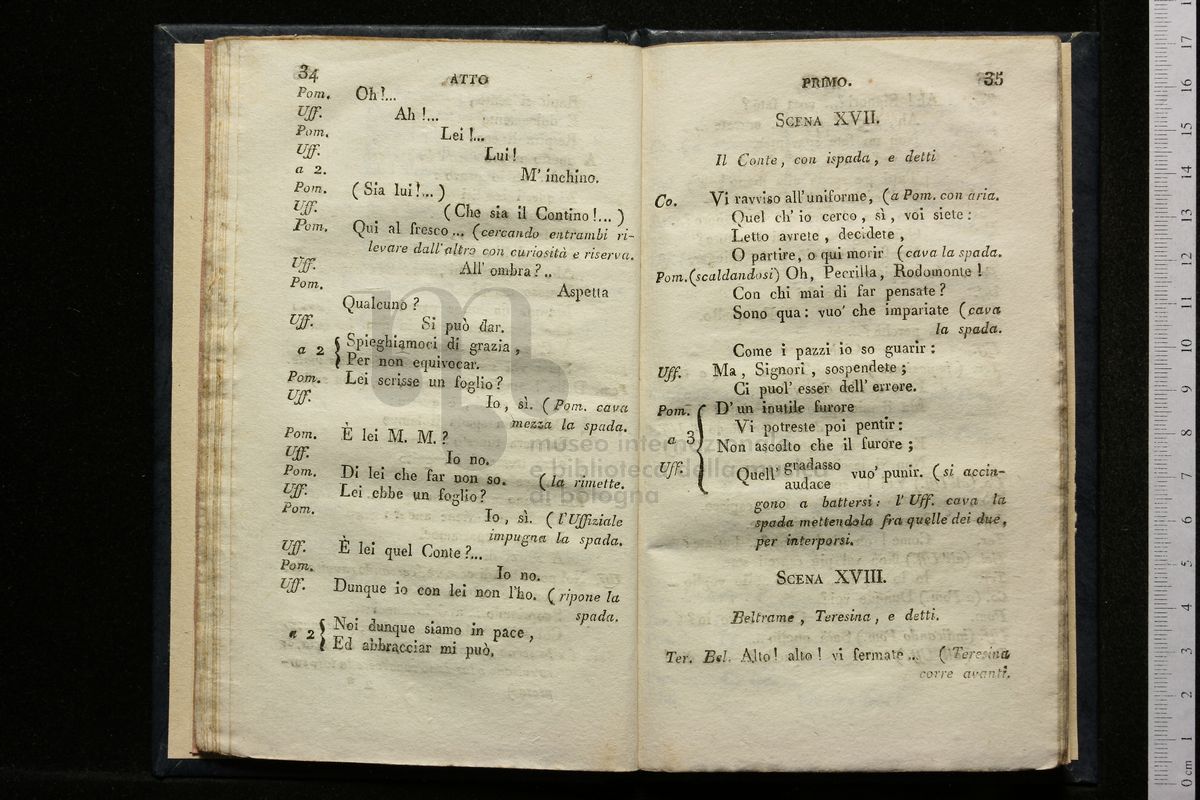 34
ATTO
Pom. Oh!...
Uff. Ah!...
Pom. Lei!...
Uff. Lui!
a 2. M' inchino.
Pom. (Sia lui!...)
Uff. (Che sia il Contino!...)
Pom. Qui al fresco... (cercando entrambi ri-
levare dall'altro con curiosità e riserva.
Uff. All' ombra?..
Pom. Aspetta
Qualcuno?
Uff. Si può dar.
a 2 { Spieghiamoci di grazia,
Per non equivocar.
Pom. Lei scrisse un foglio?
Uff. Io, sì. (Pom. cava
mezza la spada.
Pom. È lei M. M.?
Uff. Io no.
Pom. Di lei che far non so. (la rimette.
Uff. Lei ebbe un foglio?
Pom. Io, sì. (l'Uffiziale
impugna la spada.
Uff. È lei quel Conte?...
Pom. Io no.
Uff. Dunque io con lei non l'ho. (ripone la
spada.
a 2 { Noi dunque siamo in pace,
Ed abbracciar mi può,
PRIMO.
35
SCENA XVII.
Il Conte, con ispada, e detti
Co. Vi ravviso all'uniforme, (a Pom. con aria.
Quel ch' io cerco, sì, voi siete:
Letto avrete, decidete,
O partire, o qui morir (cava la spada.
Pom. (scaldandosi) Oh, Pecrilla, Rodomonte!
Con chi mai di far pensate?
Sono qua: vuo' che impariate (cava
la spada.
Come i pazzi io so guarir:
Uff. Ma, Signori, sospendete;
Ci puol' esser dell' errore.
Pom. { D' un inutile furore
Vi potreste poi pentir:
a 3 Non ascolto che il furore;
Uff. Quell' gradasso vuo' punir. (si accin-
audace
gono a battersi: l' Uff. cava la
spada mettendola fra quelle dei due,
per interporsi.
SCENA XVIII.
Beltrame, Teresina, e detti.
Ter. Bel. Alto! alto! vi fermate... (Teresina
corre avanti.
museo internazionale
e biblioteca della musica
di bologna
0 cm 1 2 3 4 5 6 7 8 9 10 11 12 13 14 15 16 17